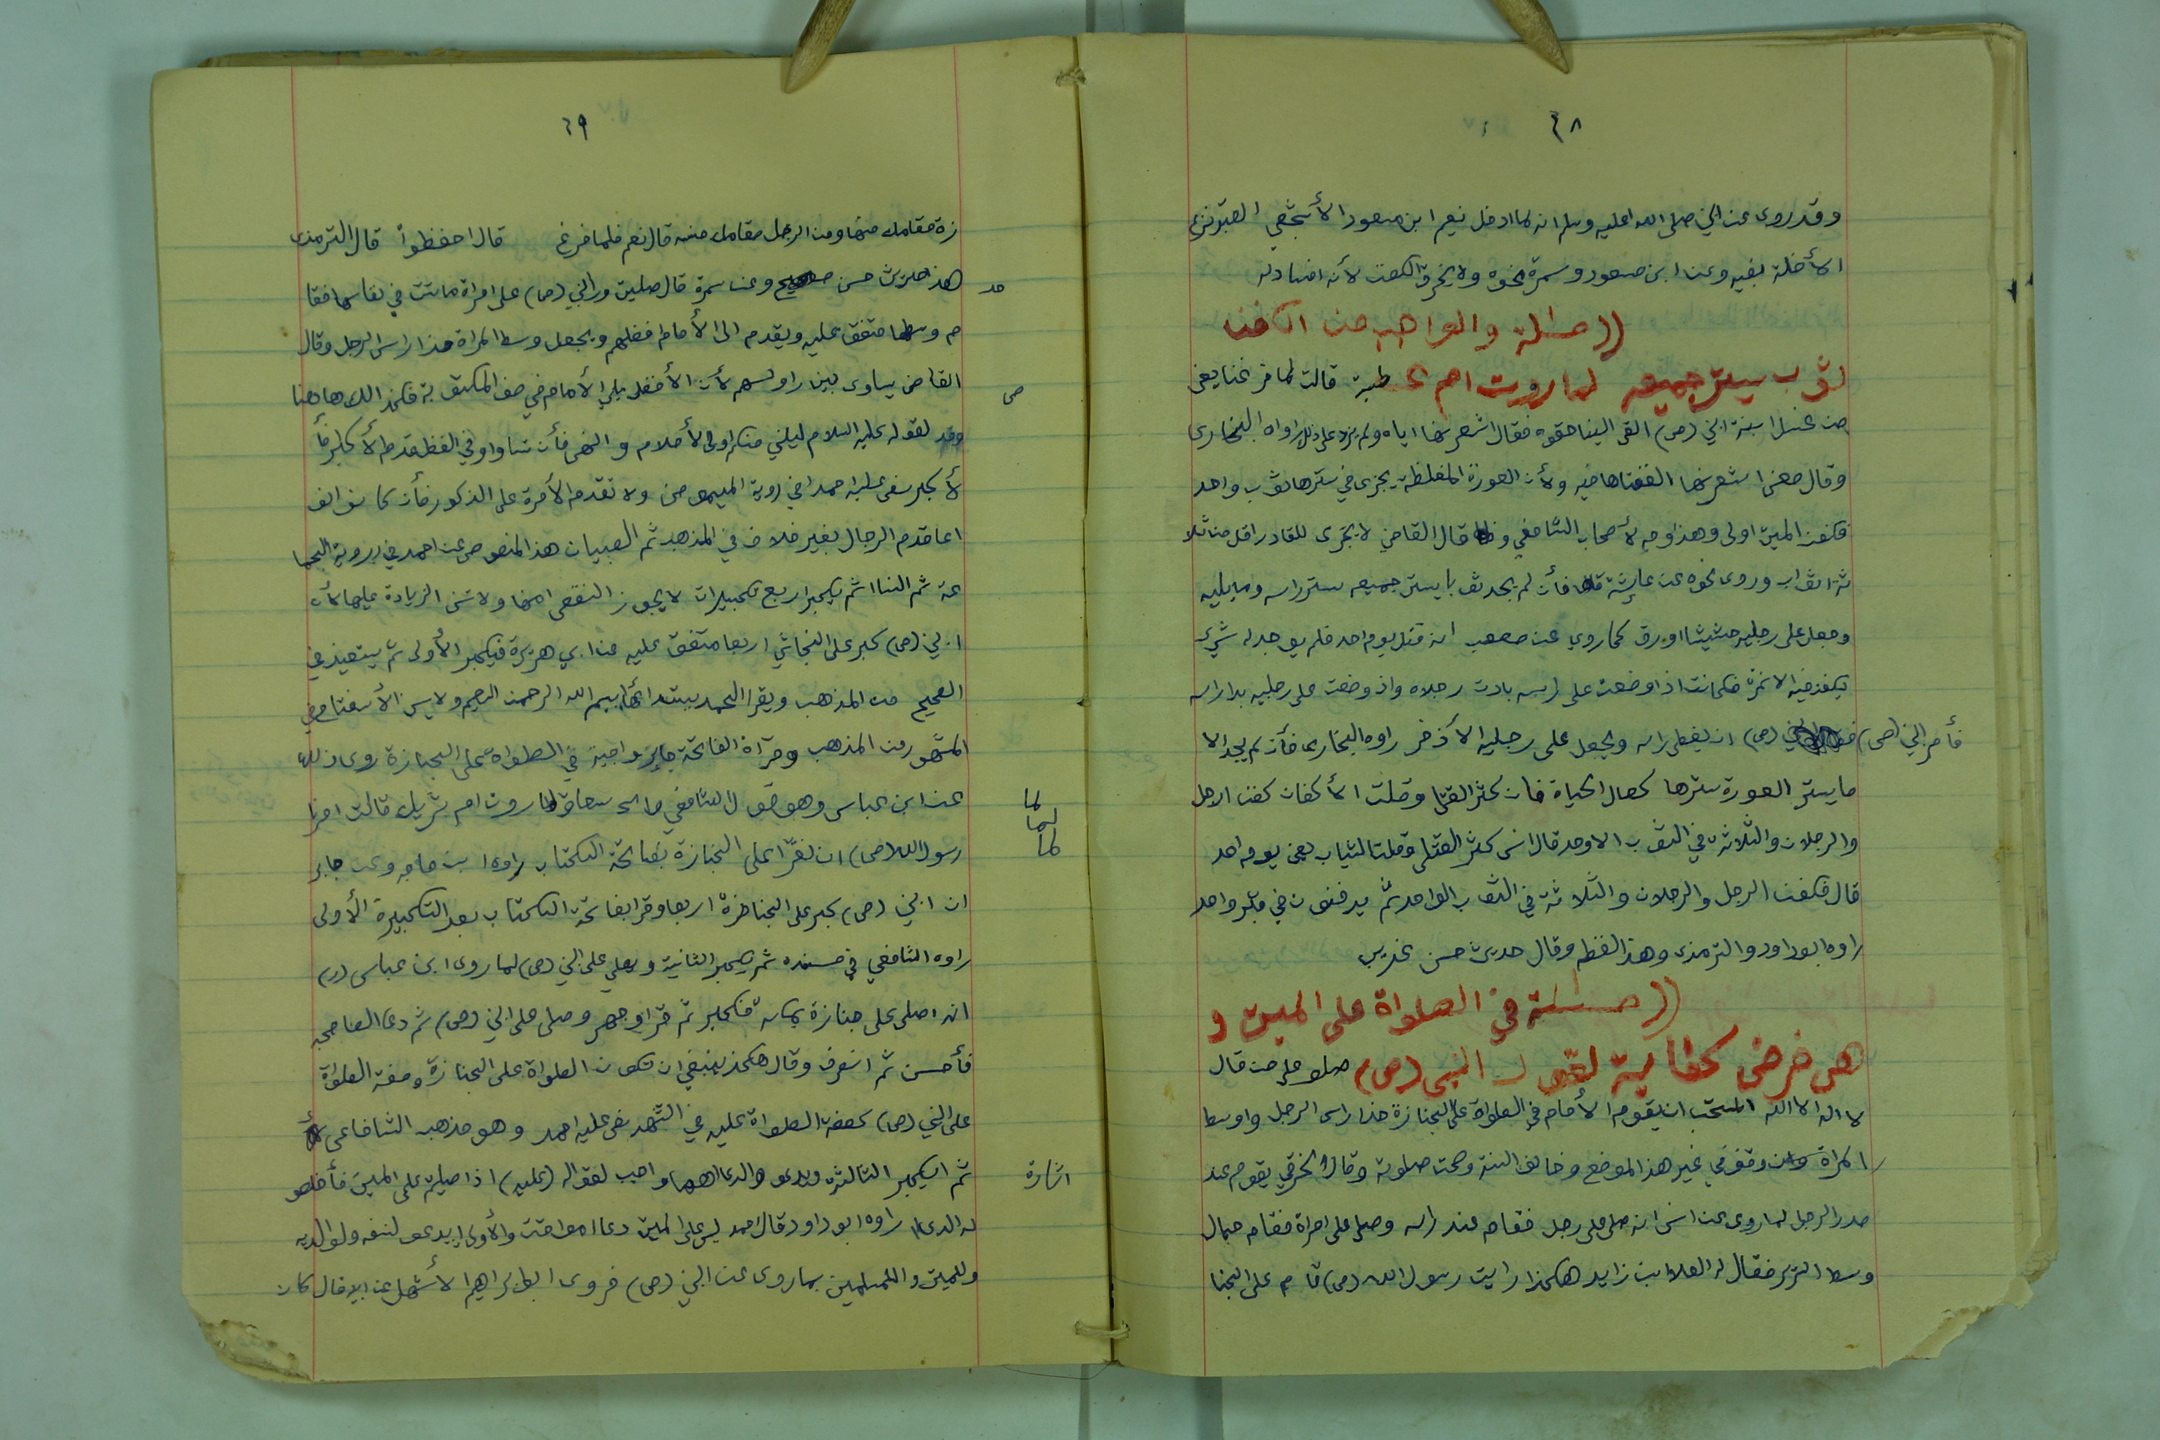 ٤٨
وقد روى عن النبي صلى الله عليه وسلم انه لما ادخل نعيم ابن مسعود الأشجعي القبر نزع
الأخلة بفيه وعن ابن مسعود وسمرة نحوه ولا يخرق الكفن لأنه افساد له
((مسئلة والواجب من الكفن
ثوب يستر جميعه لما روت ام عطية قالت لما فرغنا يعني
من غسل ابنة النبي (ص) القى الينا حقوه فقال اشعرنها اياه ولم يزد على ذلك راواه البخاري
وقال معنى اشعرنها الففناها فيه ولأن العورة المغلظة يجزى في سترها ثوب واحد
فكفن الميت اولى وهذا وجه لأصحاب الشافعي قال القاضي لا يجزى للقادر اقل من ثلا
ثة اثواب وروى نحوه عن عايشة فأن لم يجد ثوبا يستر جميعه ستر راسه وما يليه
وجعل على رجليه حشيشا او ورق كما روي عن مصعب انه قتل يوم احد فلم يوجد له شيء
يكفن فيه الا نمرة فكانت اذا وضعت على راسه بادت رجلاه واذ وضعت على رجليه بدا راسه
فأمر النبي (ص) ان يغطى راسه ويجعل على رجليه الأذخر راوه البخارى فأن لم يجد الا
ما يستر العورة سترها كحال الحياة فان كثر القتلى وقلت الأكفان كفن الرجل
والرجلان والثلاثة في الثوب الاوحد قال انس كثر القتلى وقلت الثياب يعني يوم احد
قال فكفن الرجل والرجلان والثلاثة في الثوب الواحد ثم يدفنون في قبر واحد
راوه ابو داود والترمذى وهذا لفظه وقال حديث حسن غريب
((مسئلة في الصلواة على الميت و
هي فرض كفاية لقول النبي (ص) صلو على من قال
لا اله الا الله المستحب ان يقوم الأمام في الصلواة على الجنازة حذا راس الرجل واوسط
المراة وان وقف في غير هذا الموضع وخالف السنة وصحت صلوته وقال الخرقي يقوم عند
صدر الرجل لما روى عن انس انه صلى على رجل فقام عند راسه وصلى على امراة فقام حيال
وسط السرير فقال له العلا بن زايد هكذا رايت رسول الله (ص) قام على الجنا
٤٩
زة مقامك منها ومن الرجل مقامك منه قال نعم فلما فرغ قال احفظوا قال الترمذى
هذ حديث حسن صحيح وعن سمرة قال صليت ورا النبي (ص) على امراة ماتت في نفاسها فقا
م وسطها متفق عليه ويقدم الى الأمام افضلهم ويجعل وسط المراة حذا راس الرجل وقال
القاضي يساوى بين راوسهم لأن الأفضل يلي الأمام في صف المكتوبة فكذالك هاهنا
لقوله عليه السلام ليلني منكم اولو الأحلام والنهى فأن تساواو في الفضل قدم الأكبر فأ
لأكبر نص عليه احمد في روية الميموني ولا تقدم الأمرة على الذكور فأن كانو انو
اعا قدم الرجال بغير خلاف في المذهب ثم الصبيان هذ المنصوص عن احمد في رروية الجما
عة ثم النسا ثم يكبر اربع تكبيرات لا يجوز النقص امنها ولا تسن الزيادة عليها لأن
النبي (ص) كبر على النجاشي اربعا متفق عليه عن ابي هريرة فيكبر الأولى ثم يستعيذ في
الصحيح من المذهب ويقرا الحمد يبتدائها ببسم الله الرحمن الرحيم ولا يسن الأستفتاح في
المشهور من المذهب وقرآة الفاتحة واجبة في الصلواة على الجنازة روى ذلك
عن ابن عباس وهو قول الشافعي و اسحاق لما روت ام شريك قالت امرنا
رسول الله (ص) ان نقرا على الجنازة بفاتحة الكتاب راوه ابن ماجه وعن جابر
ان النبي (ص) كبر على الجناظرة اربعا وقرا بفاتحة الكتاب بعد التكبيرة الأولى
راوه الشافعي في مسنده ثم يكبر الثانية ويصلي على النبي (ص) لما روى ابن عباس (ر)
انه اصلى على جنازة بمكة فكبر ثم قرا وجهر وصلى على النبي (ص) ثم دعا لصاحبه
فأحسن ثم انصرف وقال هكذ ينبغي ان تكون الصلواة على الجنازة وصفة الصلواة
على النبي (ص) كصفة الصلواة عليه في التشهد نص عليه احمد وهو مذهب الشافاعى
ثم ايكبر الثالثة ويدعو والدعا واجب لقواله (عليه) اذا صليتم على الميت فأخلصو
له الدعا راوه ابو داود قال احمد ليس على الميت دعاا مواقت والأولى ايدعو لنفسه ولوالديه
وللميت والمسلمين بما روى عن النبي (ص) فروى ابو ابراهيم الأشهل عن ابيه قال كان
ص
لما
لما
لما